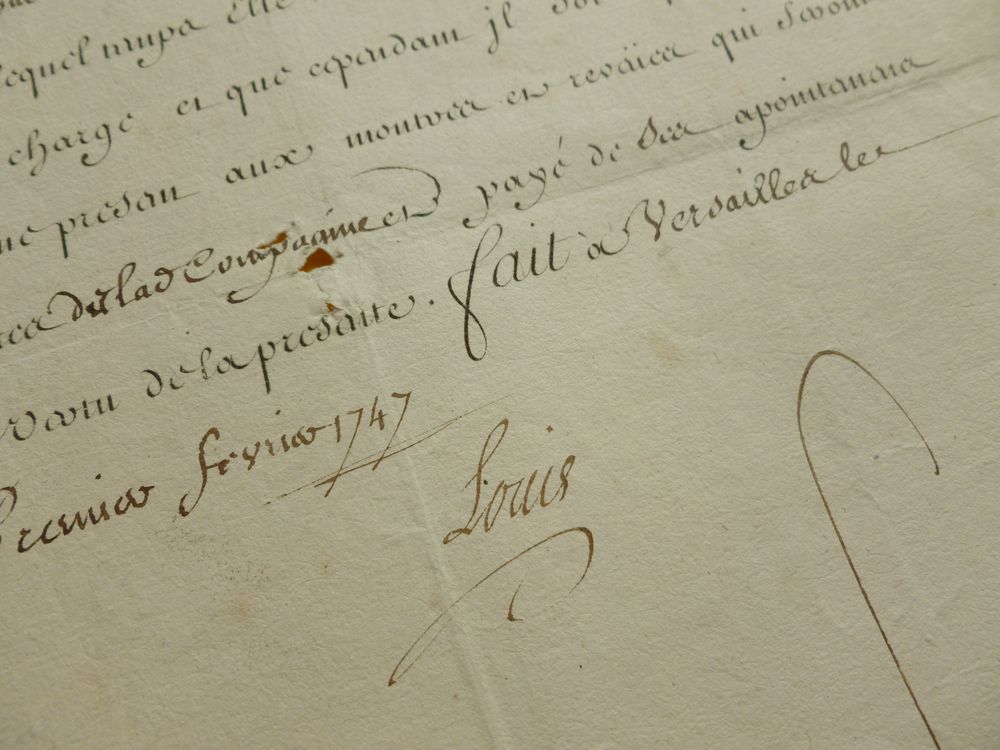 lequel
charge et que cependant jl
presant aux montres et reveües qui seront
de lad Compagnie et payé de ses apointemens
vertu de la presente. fait à Versailles le
Premier fevrier 1747
Louis